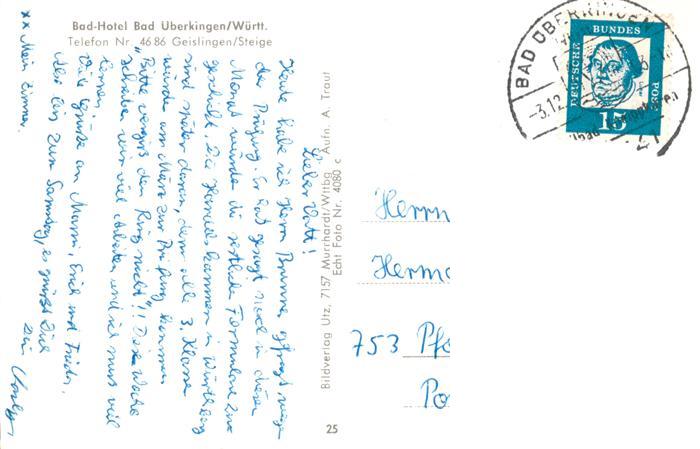 Bad-Hotel Bad Überkingen/Württ.
Telefon Nr. 4686 Geislingen/Steige
Lieber Vati!
Heute habe ich Herrn Brunner gefragt wegen
der Prüfung. Er hat gesagt noch in diesem
Monat werden die restliche Formulare
geschickt. Die Handelskammer in Württbg
sind später daran, denn alle 3. Klasse
würde am März zur Prüfung kommen
"Bitte vergiß den Ring nicht"!! Diese Woche
schreiben wir viel Arbeiten und ich muss viel
lernen.
Viele Grüße an Mammi, Erich und
Also bis zum Samstag, es grüßt Dich
Dein
xx Mein Zimmer.
Bildverlag Utz, 7157 Murrhardt/Wttbg. Aufn. A. Traut
Echt Foto Nr. 4080 c
25
Herrn
Herm
753 Pfo
Po
BAD ÜBERKINGEN
-3.12
DEUTSCHE BUNDESPOST
15